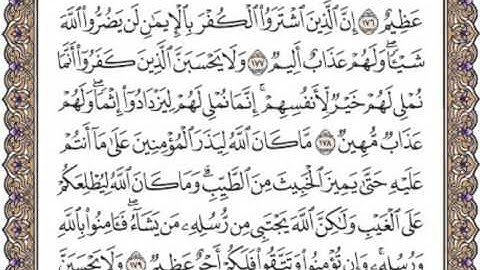 عَظِيمٌ ١٧٦ إِنَّ ٱلَّذِينَ ٱشْتَرَوُا۟ ٱلْكُفْرَ بِٱلْإِيمَـٰنِ لَن يَضُرُّوا۟ ٱللَّهَ
شَيْـًٔا ۖ وَلَهُمْ عَذَابٌ أَلِيمٌ ١٧٧ وَلَا يَحْسَبَنَّ ٱلَّذِينَ كَفَرُوٓا۟ أَنَّمَا
نُمْلِى لَهُمْ خَيْرٌ لِّأَنفُسِهِمْ ۚ إِنَّمَا نُمْلِى لَهُمْ لِيَزْدَادُوٓا۟ إِثْمًا ۚ وَلَهُمْ
عَذَابٌ مُّهِينٌ ١٧٨ مَّا كَانَ ٱللَّهُ لِيَذَرَ ٱلْمُؤْمِنِينَ عَلَىٰ مَآ أَنتُمْ
عَلَيْهِ حَتَّىٰ يَمِيزَ ٱلْخَبِيثَ مِنَ ٱلطَّيِّبِ ۗ وَمَا كَانَ ٱللَّهُ لِيُطْلِعَكُمْ
عَلَى ٱلْغَيْبِ وَلَـٰكِنَّ ٱللَّهَ يَجْتَبِى مِن رُّسُلِهِۦ مَن يَشَآءُ ۖ فَـَٔامِنُوا۟ بِٱللَّهِ
وَرُسُلِهِۦ ۚ وَإِن تُؤْمِنُوا۟ وَتَتَّقُوا۟ فَلَكُمْ أَجْرٌ عَظِيمٌ ١٧٩ وَلَا يَحْسَبَنَّ